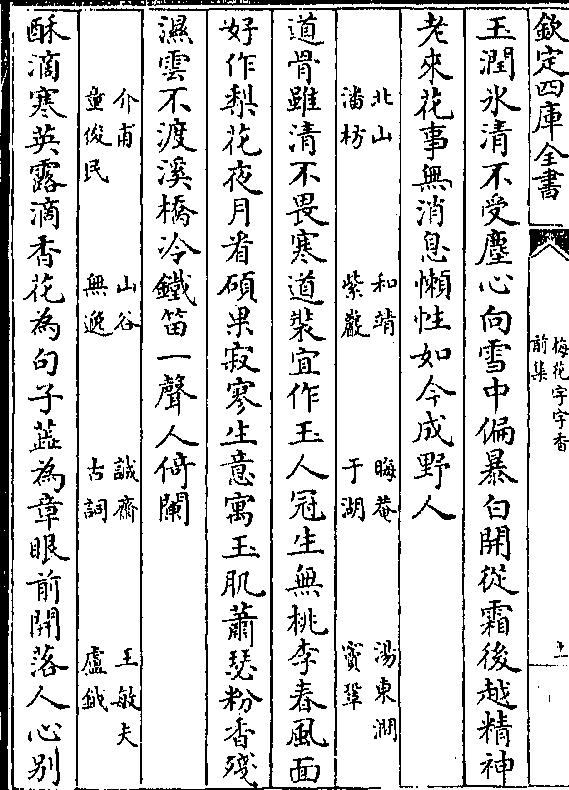 欽定四庫全書
梅花字字香
前集
十
玉潤冰清不受塵心向雪中偏暴白開從霜後越精神
老來花事無消息懶性如今成野人
北山　和靖　晦菴　湯東澗
潘枋　紫巖　于湖　竇鞏
道骨雖清不畏寒道裝宜作玉人冠生無桃李春風面
好作梨花夜月看碩果寂寥生意寓玉肌蕭瑟粉香殘
濕雲不渡溪橋冷鐵笛一聲人倚闌
介甫　山谷　誠齋　王敏夫
童俊民　無逸　古詞　盧鉞
酥滴寒英露滴香花為句子蕋為章眼前開落人心別